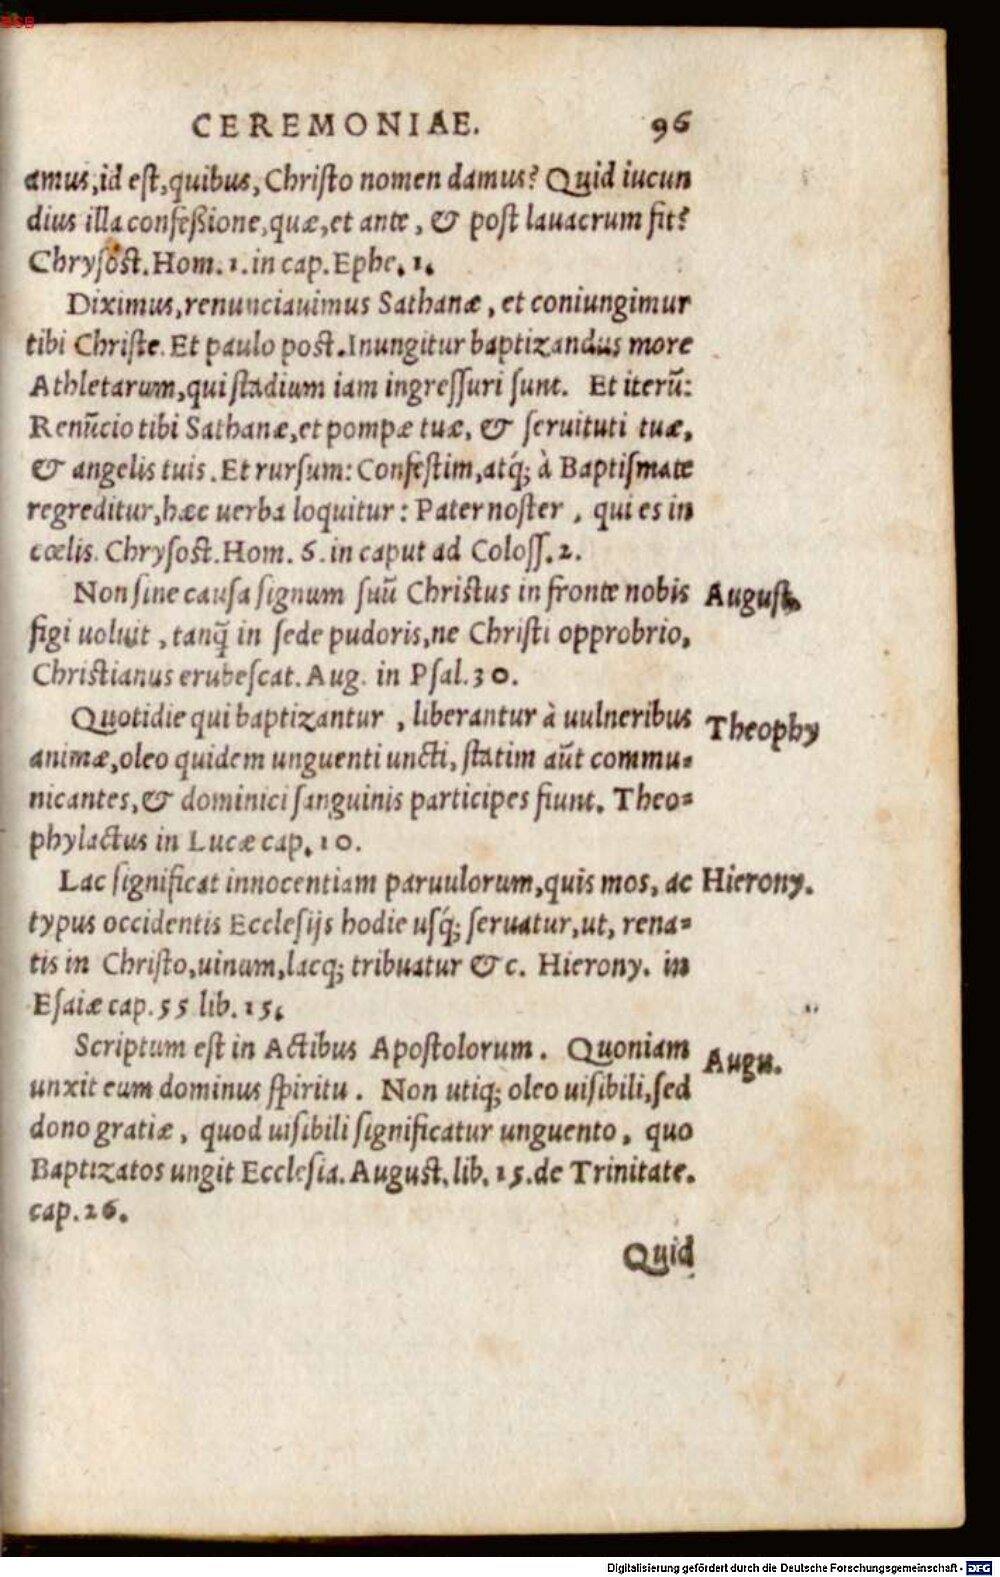 BSB
CEREMONIAE. 96
amus, id est, quibus, Christo nomen damus? Quid iucun
dius illa confeßione, quæ, et ante, & post lauacrum fit?
Chrysost. Hom. 1. in cap. Ephe. 1.
Diximus, renunciauimus Sathanæ, et coniungimur
tibi Christe. Et paulo post. Inungitur baptizandus more
Athletarum, qui stadium iam ingressuri sunt. Et iterū:
Renūcio tibi Sathanæ, et pompæ tuæ, & seruituti tuæ,
& angelis tuis. Et rursum: Confestim, atq́; à Baptismate
regreditur, hæc uerba loquitur: Pater noster, qui es in
cœlis. Chrysost. Hom. 6. in caput ad Coloss. 2.
Non sine causa signum suū Christus in fronte nobis August.
figi uoluit, tanq̄ in sede pudoris, ne Christi opprobrio,
Christianus erubescat. Aug. in Psal. 30.
Quotidie qui baptizantur, liberantur à uulneribus Theophy
animæ, oleo quidem unguenti uncti, statim aūt commu-
nicantes, & dominici sanguinis participes fiunt. Theo-
phylactus in Lucæ cap. 10.
Lac significat innocentiam paruulorum, quis mos, ac Hierony.
typus occidentis Ecclesijs hodie usq́; seruatur, ut, rena-
tis in Christo, uinum, lacq; tribuatur &c. Hierony. in
Esaiæ cap. 55 lib. 15.
Scriptum est in Actibus Apostolorum. Quoniam Augu.
unxit eum dominus spiritu. Non utiq; oleo uisibili, sed
dono gratiæ, quod uisibili significatur unguento, quo
Baptizatos ungit Ecclesia. August. lib. 15. de Trinitate.
cap. 26.
Quid
Digitalisierung gefördert durch die Deutsche Forschungsgemeinschaft - DFG